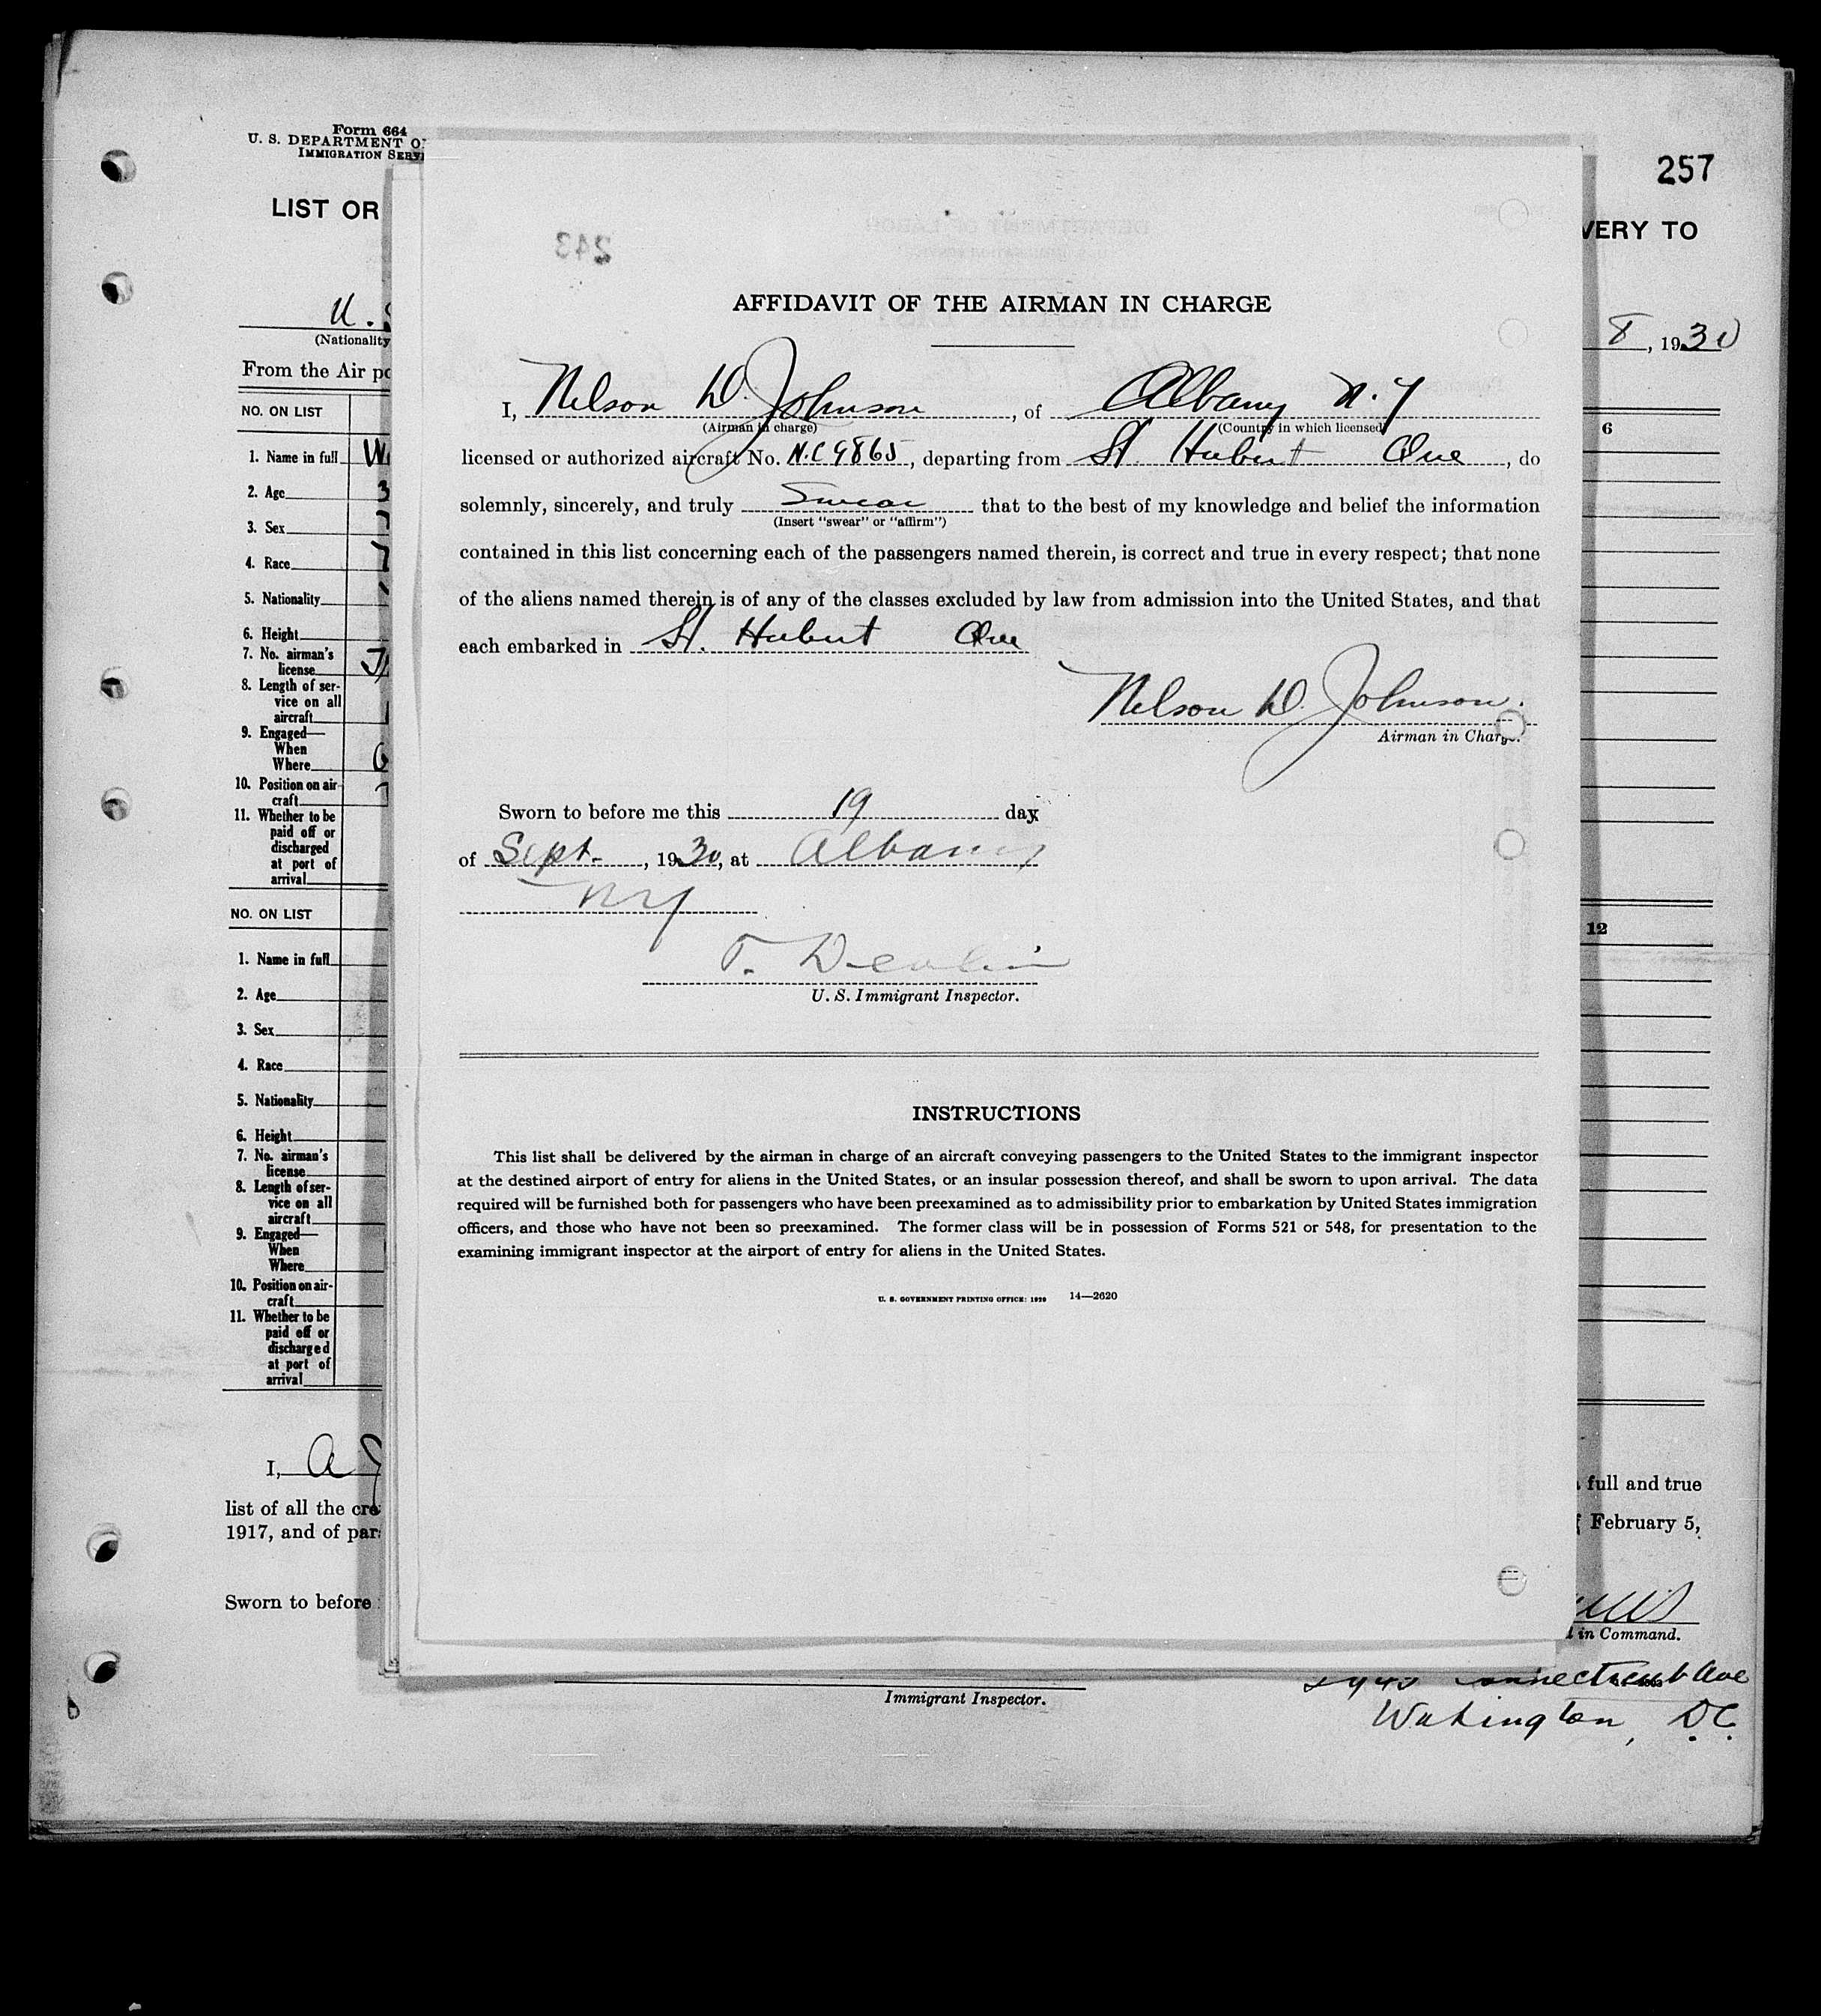 Form 664
U. S. DEPARTMENT O
IMMIGRATION SERV
257
LIST OR
VERY TO
U. S
(Nationality
8, 1930
From the Air po
NO. ON LIST
6
1. Name in full
2. Age
3. Sex
4. Race
5. Nationality
6. Height
7. No. airman's
license
8. Length of ser-
vice on all
aircraft
9. Engaged—
When
Where
10. Position on air-
craft
11. Whether to be
paid off or
discharged
at port of
arrival
NO. ON LIST
12
1. Name in full
2. Age
3. Sex
4. Race
5. Nationality
6. Height
7. No. airman's
license
8. Length of ser-
vice on all
aircraft
9. Engaged—
When
Where
10. Position on air-
craft
11. Whether to be
paid off or
discharged
at port of
arrival
I, A
full and true
list of all the cre
February 5,
1917, and of par
Sworn to before
in Command.
Immigrant Inspector.
Wahington, D.C.
243
AFFIDAVIT OF THE AIRMAN IN CHARGE
I, Nelson D. Johnson, of Albany N.Y
(Airman in charge) (Country in which licensed)
licensed or authorized aircraft No. N.C 9865, departing from St. Hubert Que, do
solemnly, sincerely, and truly Swear that to the best of my knowledge and belief the information
(Insert "swear" or "affirm")
contained in this list concerning each of the passengers named therein, is correct and true in every respect; that none
of the aliens named therein is of any of the classes excluded by law from admission into the United States, and that
each embarked in St. Hubert Que
Nelson D. Johnson.
Airman in Charge.
Sworn to before me this 19 day
of Sept., 1930, at Albany
NY
T. Devlin
U. S. Immigrant Inspector.
INSTRUCTIONS
This list shall be delivered by the airman in charge of an aircraft conveying passengers to the United States to the immigrant inspector
at the destined airport of entry for aliens in the United States, or an insular possession thereof, and shall be sworn to upon arrival. The data
required will be furnished both for passengers who have been preexamined as to admissibility prior to embarkation by United States immigration
officers, and those who have not been so preexamined. The former class will be in possession of Forms 521 or 548, for presentation to the
examining immigrant inspector at the airport of entry for aliens in the United States.
U. S. GOVERNMENT PRINTING OFFICE: 1929 14—2620